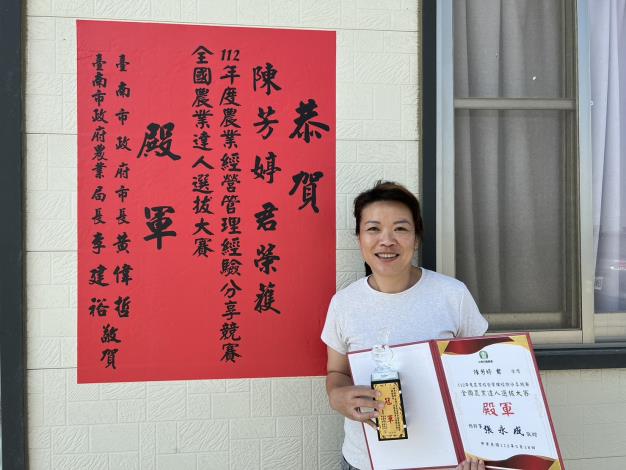 恭賀
陳芳婷君榮獲
112年度農業經營管理經驗分享競賽
全國農業達人選拔大賽
殿軍
臺南市政府市長黃偉哲
臺南市政府農業局長李建裕 敬賀
陳芳婷 君
全國農業達人選拔大賽
殿軍
張永成